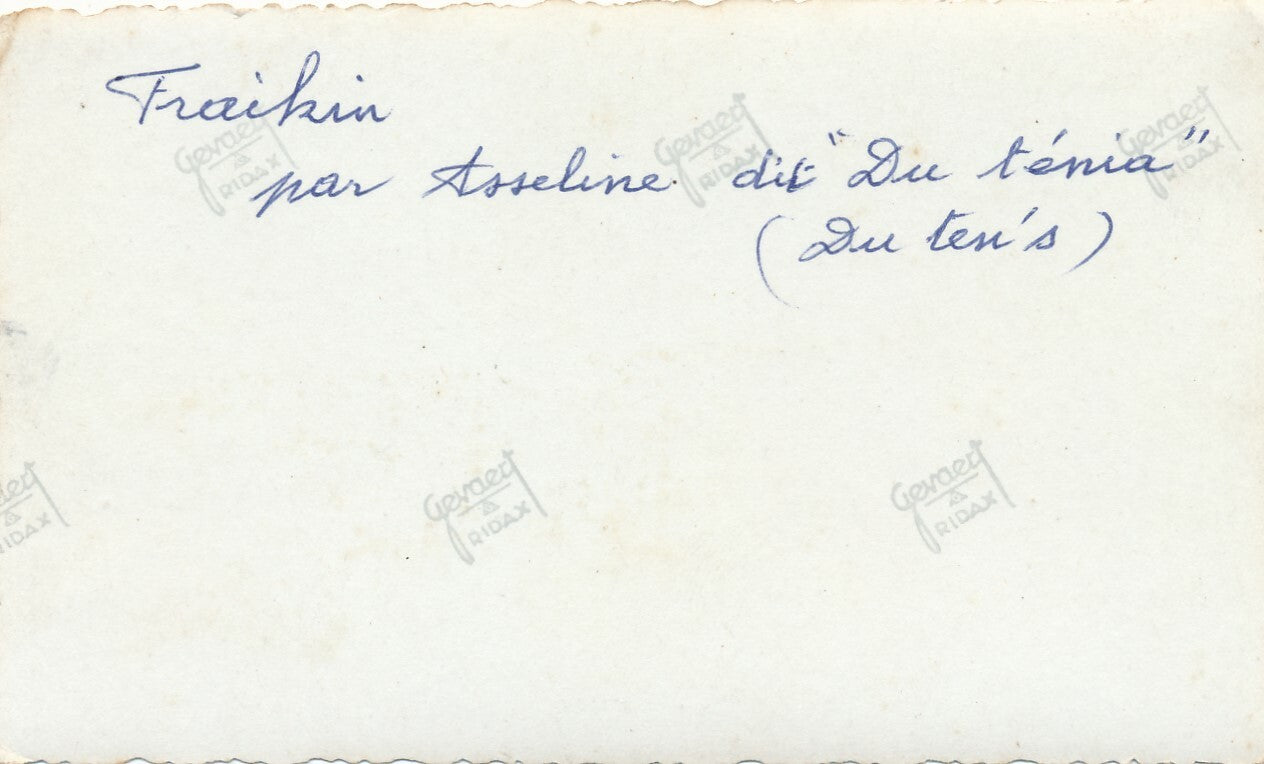 Fraikin
par Asseline dit "Du ténia"
(Du ten's)
Gevaert
RIDAX
Gevaert
RIDAX
Gevaert
RIDAX
Gevaert
RIDAX
Gevaert
RIDAX